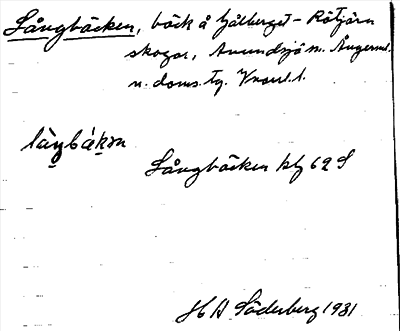 Långbäcken, bäck å Gålberget - Rötjärn
skogar, Anundsjö sn. Ångerml.
n. doms. tg. Vnorrl. l.
Långbäcken kbl 62 S
H A Söderberg 1931